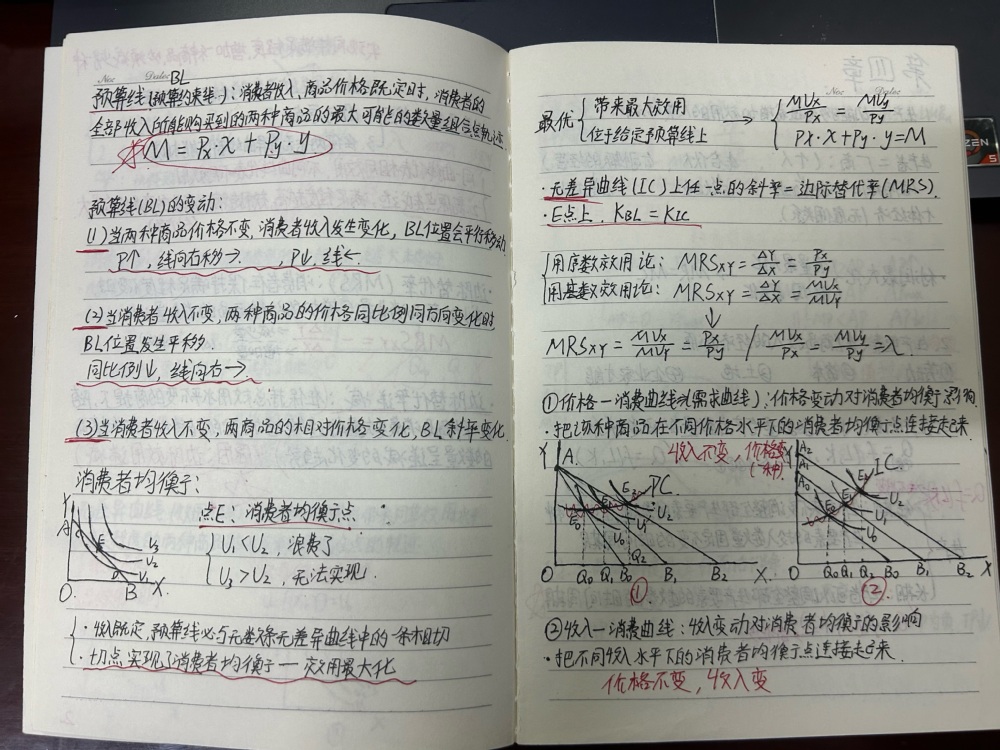 BL
预算线(预算约束线):消费者收入,商品价格既定时,消费者的
全部收入所能购买到的两种商品的最大可能的数量组合点轨迹.
M = Px·X + Py·y
预算线(BL)的变动:
(1)当两种商品价格不变,消费者收入发生变化,BL位置会平行移动.
P↑,线向右移→. ,P↓,线←.
(2)当消费者收入不变,两种商品的价格同比例同方向变化时
BL位置发生平移.
同比例↓,线向右→.
(3)当消费者收入不变,两商品的相对价格变化,BL斜率变化.
消费者均衡:
点E:消费者均衡点.
U₁<U₂,浪费了
U₃>U₂,无法实现.
Y
A
E
U₃
U₂
U₁
O. B X.
·收入既定,预算线必与无数条无差异曲线中的一条相切
·切点实现了消费者均衡——效用最大化
最优 { 带来最大效用
位于给定预算线上
→ { MUx/Px = MUy/Py
Px·X+Py·y=M
·无差异曲线(IC)上任一点的斜率=边际替代率(MRS).
·E点上,KBL=KIC
{用序数效用论: MRSxy = ΔY/ΔX = Px/Py
用基数效用论: MRSxy = ΔY/ΔX = MUx/MUy
↓
MRSxy = MUx/MUy = Px/Py / MUx/Px = MUy/Py =λ.
①价格—消费曲线(需求曲线):价格变动对消费者均衡影响
·把该种商品在不同价格水平下的消费者均衡点连接起来.
收入不变,价格变
(一种)
Y A. PC. U₂ U₁ U₀
E₀ E₁ E₂
O Q₀ Q₁ B₀ Q₂ B₁ B₂ X.
①
Y A₂ A₁ A₀ IC. U₂ U₁ U₀
E₀ E₁ E₂
O Q₀ Q₁ Q₂ B₀ B₁ B₂ X
②
②收入—消费曲线:收入变动对消费者均衡的影响
·把不同收入水平下的消费者均衡点连接起来.
价格不变,收入变